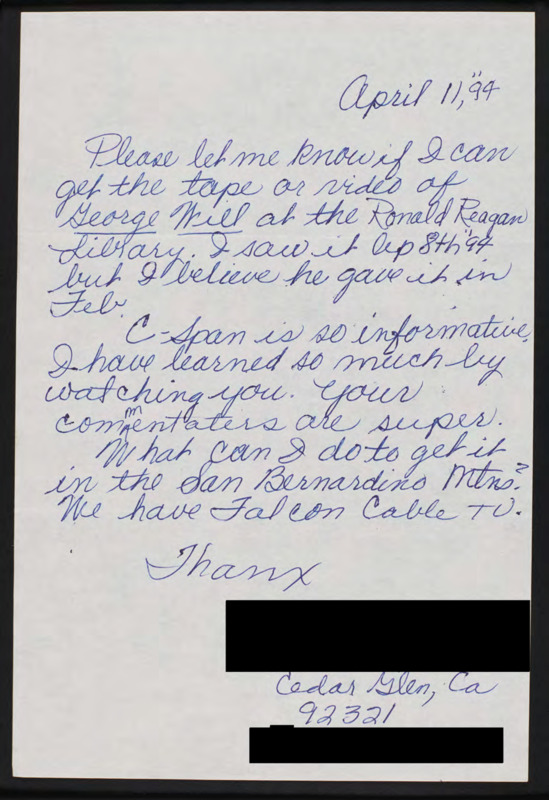 April 11, "94
Please let me know if I can
get the tape or video of
George Will at the Ronald Reagan
Library. I saw it Ap 8th "94
but I believe he gave it in
Feb.
C-Span is so informative.
I have learned so much by
watching you. Your
commentaters are super.
What can I do to get it
in the San Bernardino Mtns?
We have Falcon Cable TV.
Thanx
Cedar Glen, Ca
92321